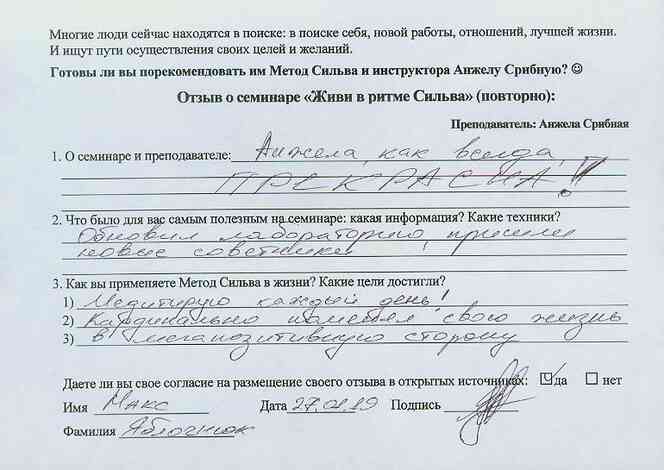 Многие люди сейчас находятся в поиске: в поиске себя, новой работы, отношений, лучшей жизни.
И ищут пути осуществления своих целей и желаний.
Готовы ли вы порекомендовать им Метод Сильва и инструктора Анжелу Срибную? ☺
Отзыв о семинаре «Живи в ритме Сильва» (повторно):
Преподаватель: Анжела Срибная
1. О семинаре и преподавателе: Анжела, как всегда,
ПРЕКРАСНА!
2. Что было для вас самым полезным на семинаре: какая информация? Какие техники?
Обновил лабораторию, пришли
новые советники
3. Как вы применяете Метод Сильва в жизни? Какие цели достигли?
1) Медитирую каждый день!
2) Кардинально поменял свою жизнь
3) в мегапозитивную сторону
Даете ли вы свое согласие на размещение своего отзыва в открытых источниках: ☑ да ☐ нет
Имя Макс Дата 27.01.19 Подпись
Фамилия Яблочнюк